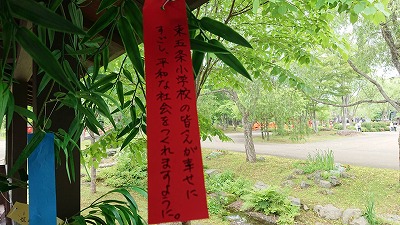 東五条小学校の皆んが幸せに
すごし、平和な社会をつくれますように。